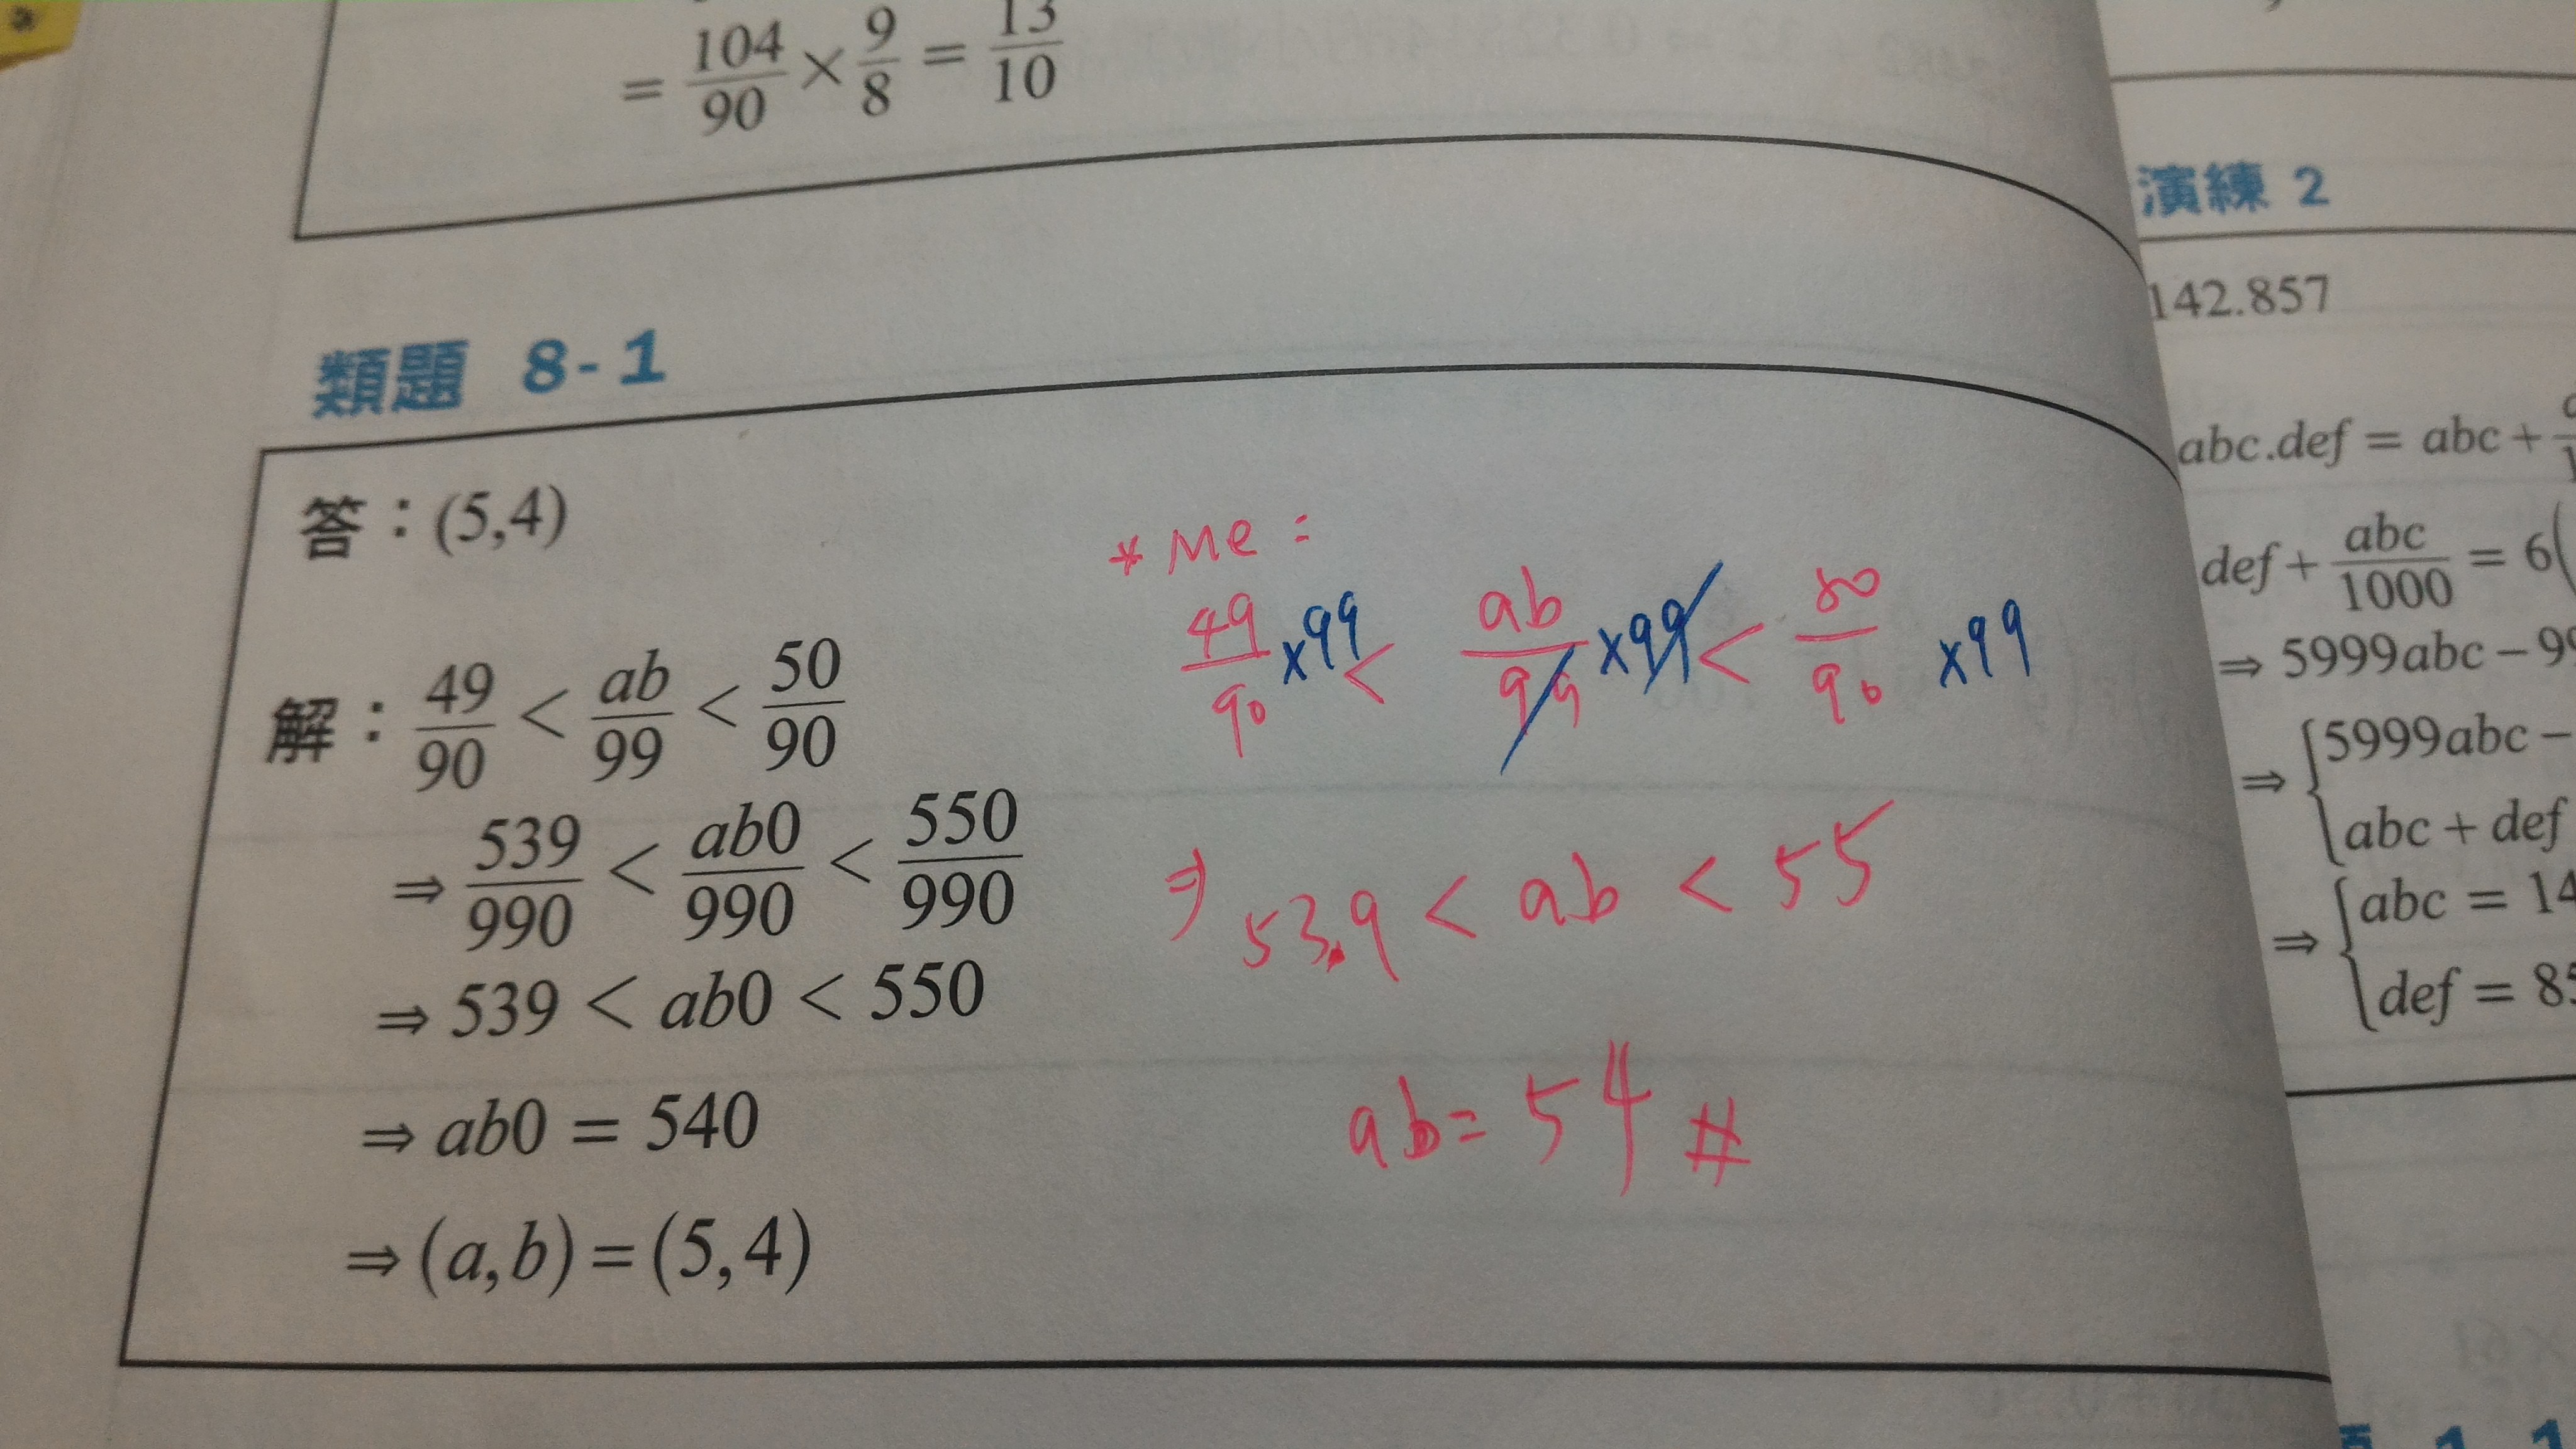 = 104/90 × 9/8 = 13/10
類題 8-1
答：(5,4)
解：49/90 < ab/99 < 50/90
⇒ 539/990 < ab0/990 < 550/990
⇒ 539 < ab0 < 550
⇒ ab0 = 540
⇒ (a,b) = (5,4)
* Me :
49/90 ×99 < ab/99 ×99 < 50/90 ×99
⇒ 53.9 < ab < 55
ab = 54 #
演練 2
142.857
abc.def = abc +
def + abc/1000 = 6(
⇒ 5999abc − 99
⇒ {5999abc −
abc + def
⇒ {abc = 14
def = 85